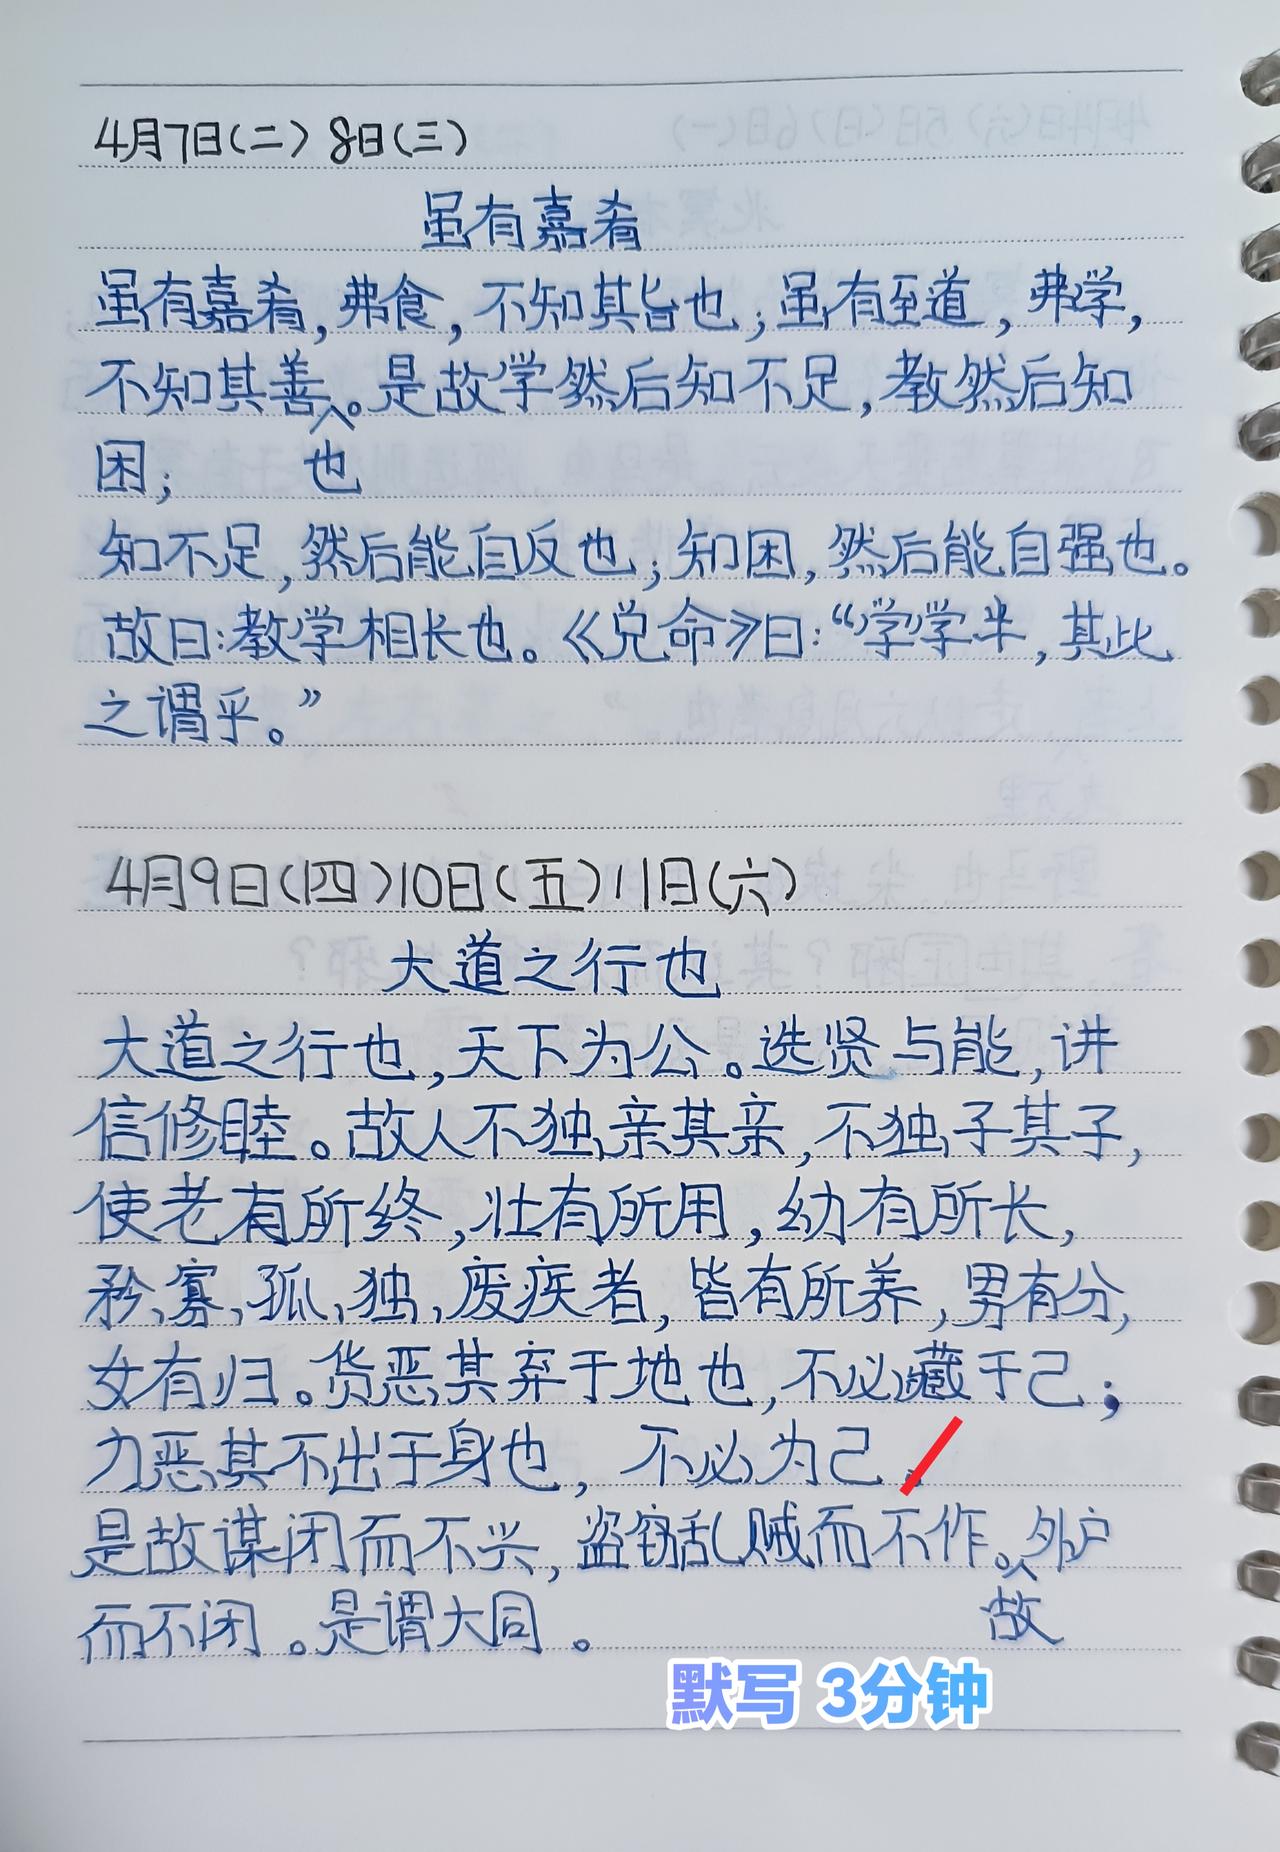 4月7日(二) 8日(三)
虽有嘉肴
虽有嘉肴,弗食,不知其旨也;虽有至道,弗学,
不知其善。是故学然后知不足,教然后知
困; 也
知不足,然后能自反也;知困,然后能自强也。
故曰:教学相长也。《兑命》曰:“学学半,其此
之谓乎。”
4月9日(四)10日(五)11日(六)
大道之行也
大道之行也,天下为公。选贤与能,讲
信修睦。故人不独亲其亲,不独子其子,
使老有所终,壮有所用,幼有所长,
矜、寡、孤、独、废疾者,皆有所养,男有分,
女有归。货恶其弃于地也,不必藏于己;
力恶其不出于身也,不必为己.
是故谋闭而不兴,盗窃乱贼而不作。外户
而不闭。是谓大同。 故
默写 3分钟